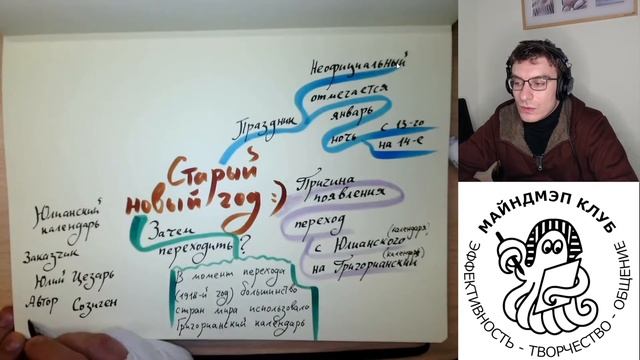 Старый
новый год :)
Праздник
Неофициальный
отмечается
январь
ночь
с 13-го
на 14-е
Причина
появления
переход
с Юлианского (календаря)
на Григорианский (календарь)
Зачем
переходить?
В момент перехода
(1918-й год) большинство
стран мира использовало
Григорианский календарь
Юлианский
календарь
Заказчик
Юлий Цезарь
Автор Созиген
МАЙНДМЭП КЛУБ
ЭФФЕКТИВНОСТЬ - ТВОРЧЕСТВО - ОБЩЕНИЕ